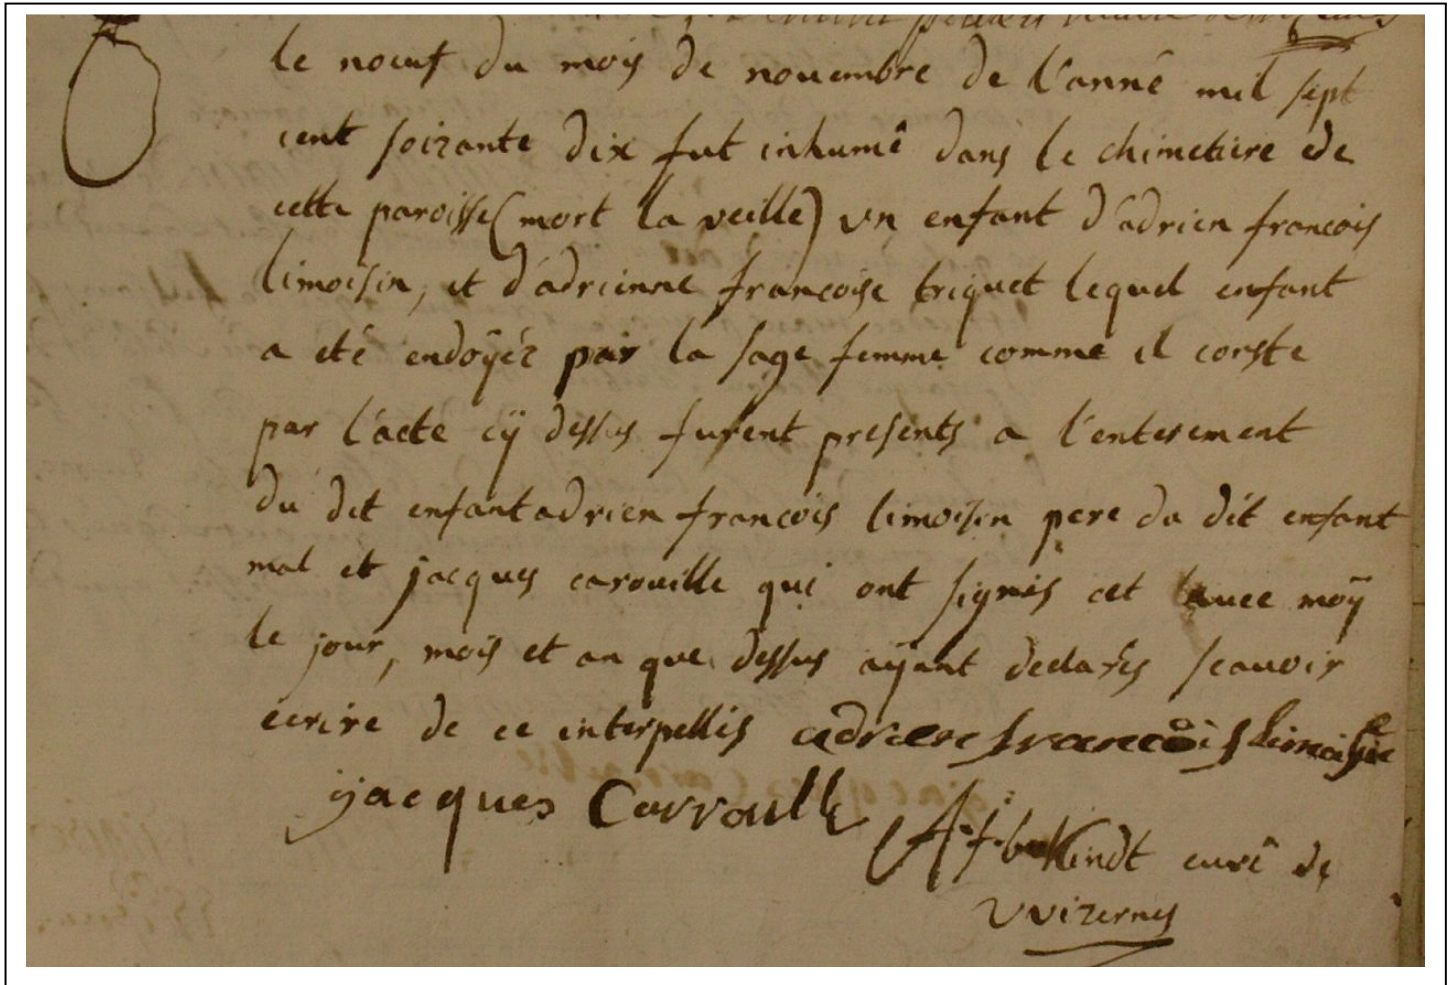 le noeuf du mois de nouembre de l'année mil sept
cent soizante dix fut inhumé dans le chimetiere de
cette paroisse (mort la veille) un enfant d'adrien francois
limoisin, et d'adrienne francoise triquet lequel enfant
a été endoÿéz par la sage femme comme il conste
par l'acte cÿ dessus furent presents a l'enterement
du dit enfant adrien francois limoisin pere du dit enfant
et jacques carouille qui ont signés cet avec moÿ
le jour, mois et an que dessus aÿant declarés scauoir
ecrire de ce interpellés adrien francois limoisin
jjacques Carroulle
curé de
vvizernes